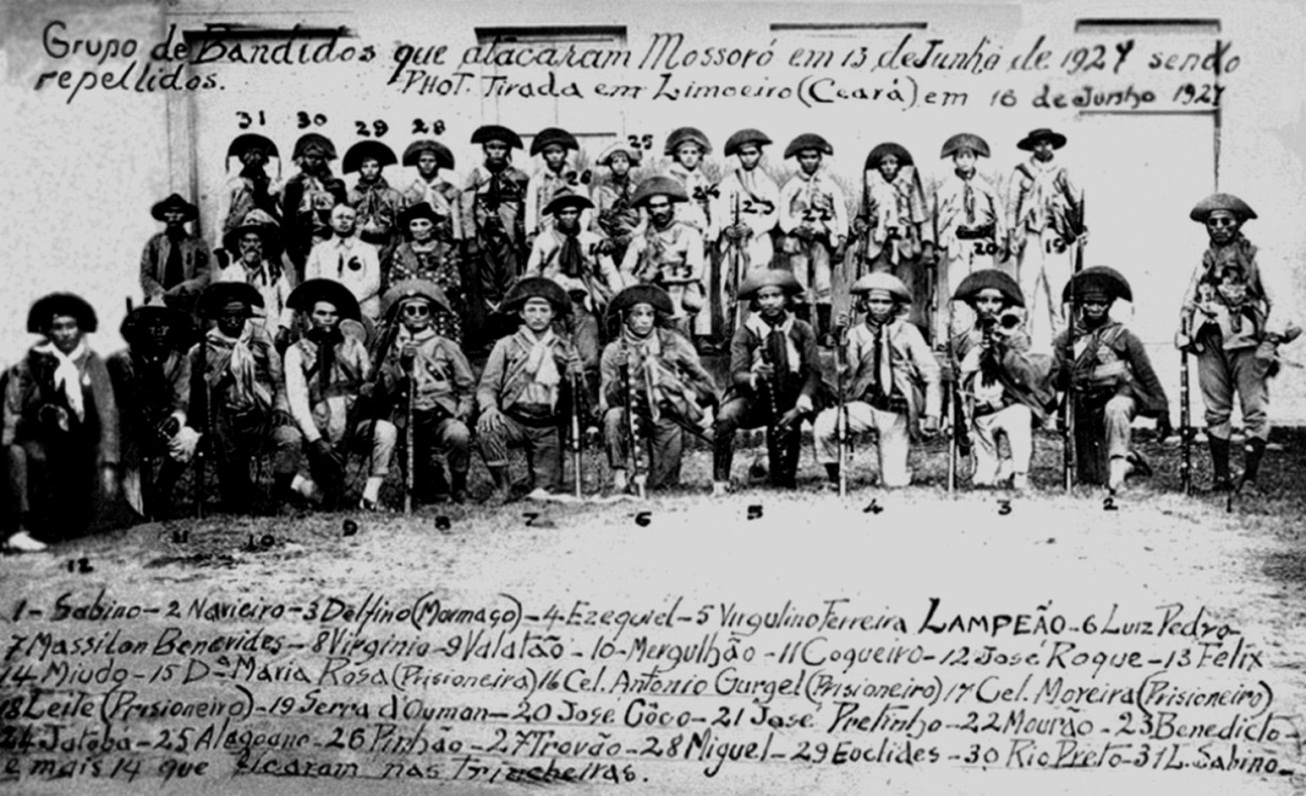 Grupo de Bandidos que atacaram Mossoró em 13 de Junho de 1927 sendo
repellidos. PHOT. Tirada em Limoeiro (Ceará) em 16 de Junho 1927
31 30 29 28 25
26 24 23 22
16 13 20 19
12 11 10 9 8 7 6 5 4 3 2 1
1- Sabino - 2 Navieiro - 3 Delfino (Mormaço) - 4 Ezequiel - 5 Virgulino Ferreira LAMPEÃO - 6 Luiz Pedro -
7 Massilon Benevides - 8 Virginio - 9 Valatão - 10 - Mergulhão - 11 Coqueiro - 12 José Roque - 13 Felix
14 Miudo - 15 Dª Maria Rosa (Prisioneira) 16 Cel. Antonio Gurgel (Prisioneiro) 17 Cel. Moreira (Prisioneiro)
18 Leite (Prisioneiro) - 19 Serra d'Ouman - 20 José Côco - 21 José Pretinho - 22 Mourão - 23 Benedicto -
24 Jatobá - 25 Alagoano - 26 Pinhão - 27 Trovão - 28 Miguel - 29 Euclides - 30 Rio Preto - 31 L. Sabino -
e mais 14 que ficaram nas Trincheiras.